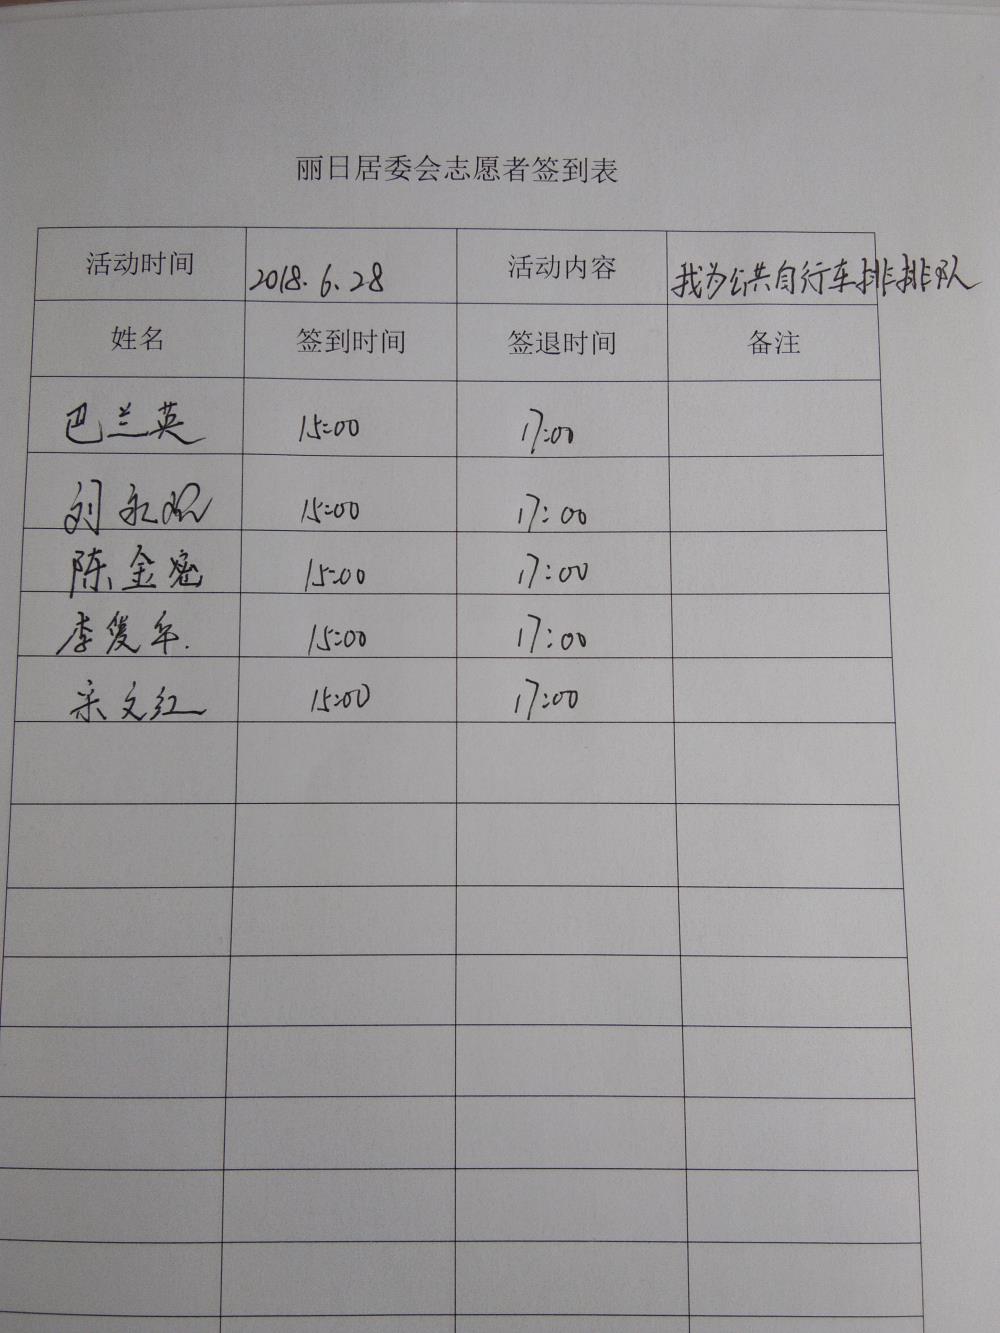 丽日居委会志愿者签到表
活动时间 2018.6.28 活动内容 我为公共自行车排排队
姓名 签到时间 签退时间 备注
巴兰英 15:00 17:00
刘永 15:00 17:00
陈金密 15:00 17:00
李 15:00 17:00
宋文红 15:00 17:00